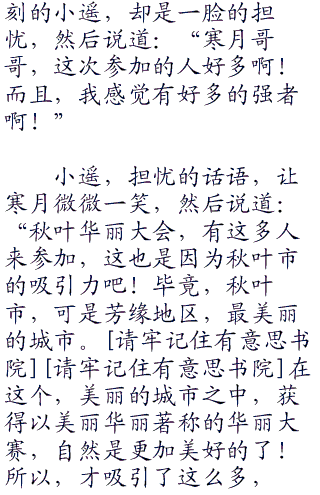 刻的小遥，却是一脸的担
忧，然后说道：“寒月哥
哥，这次参加的人好多啊！
而且，我感觉有好多的强者
啊！”
小遥，担忧的话语，让
寒月微微一笑，然后说道：
“秋叶华丽大会，有这多人
来参加，这也是因为秋叶市
的吸引力吧！毕竟，秋叶
市，可是芳缘地区，最美丽
的城市。[请牢记住有意思书
院][请牢记住有意思书院]在
这个，美丽的城市之中，获
得以美丽华丽著称的华丽大
赛，自然是更加美好的了！
所以，才吸引了这么多，